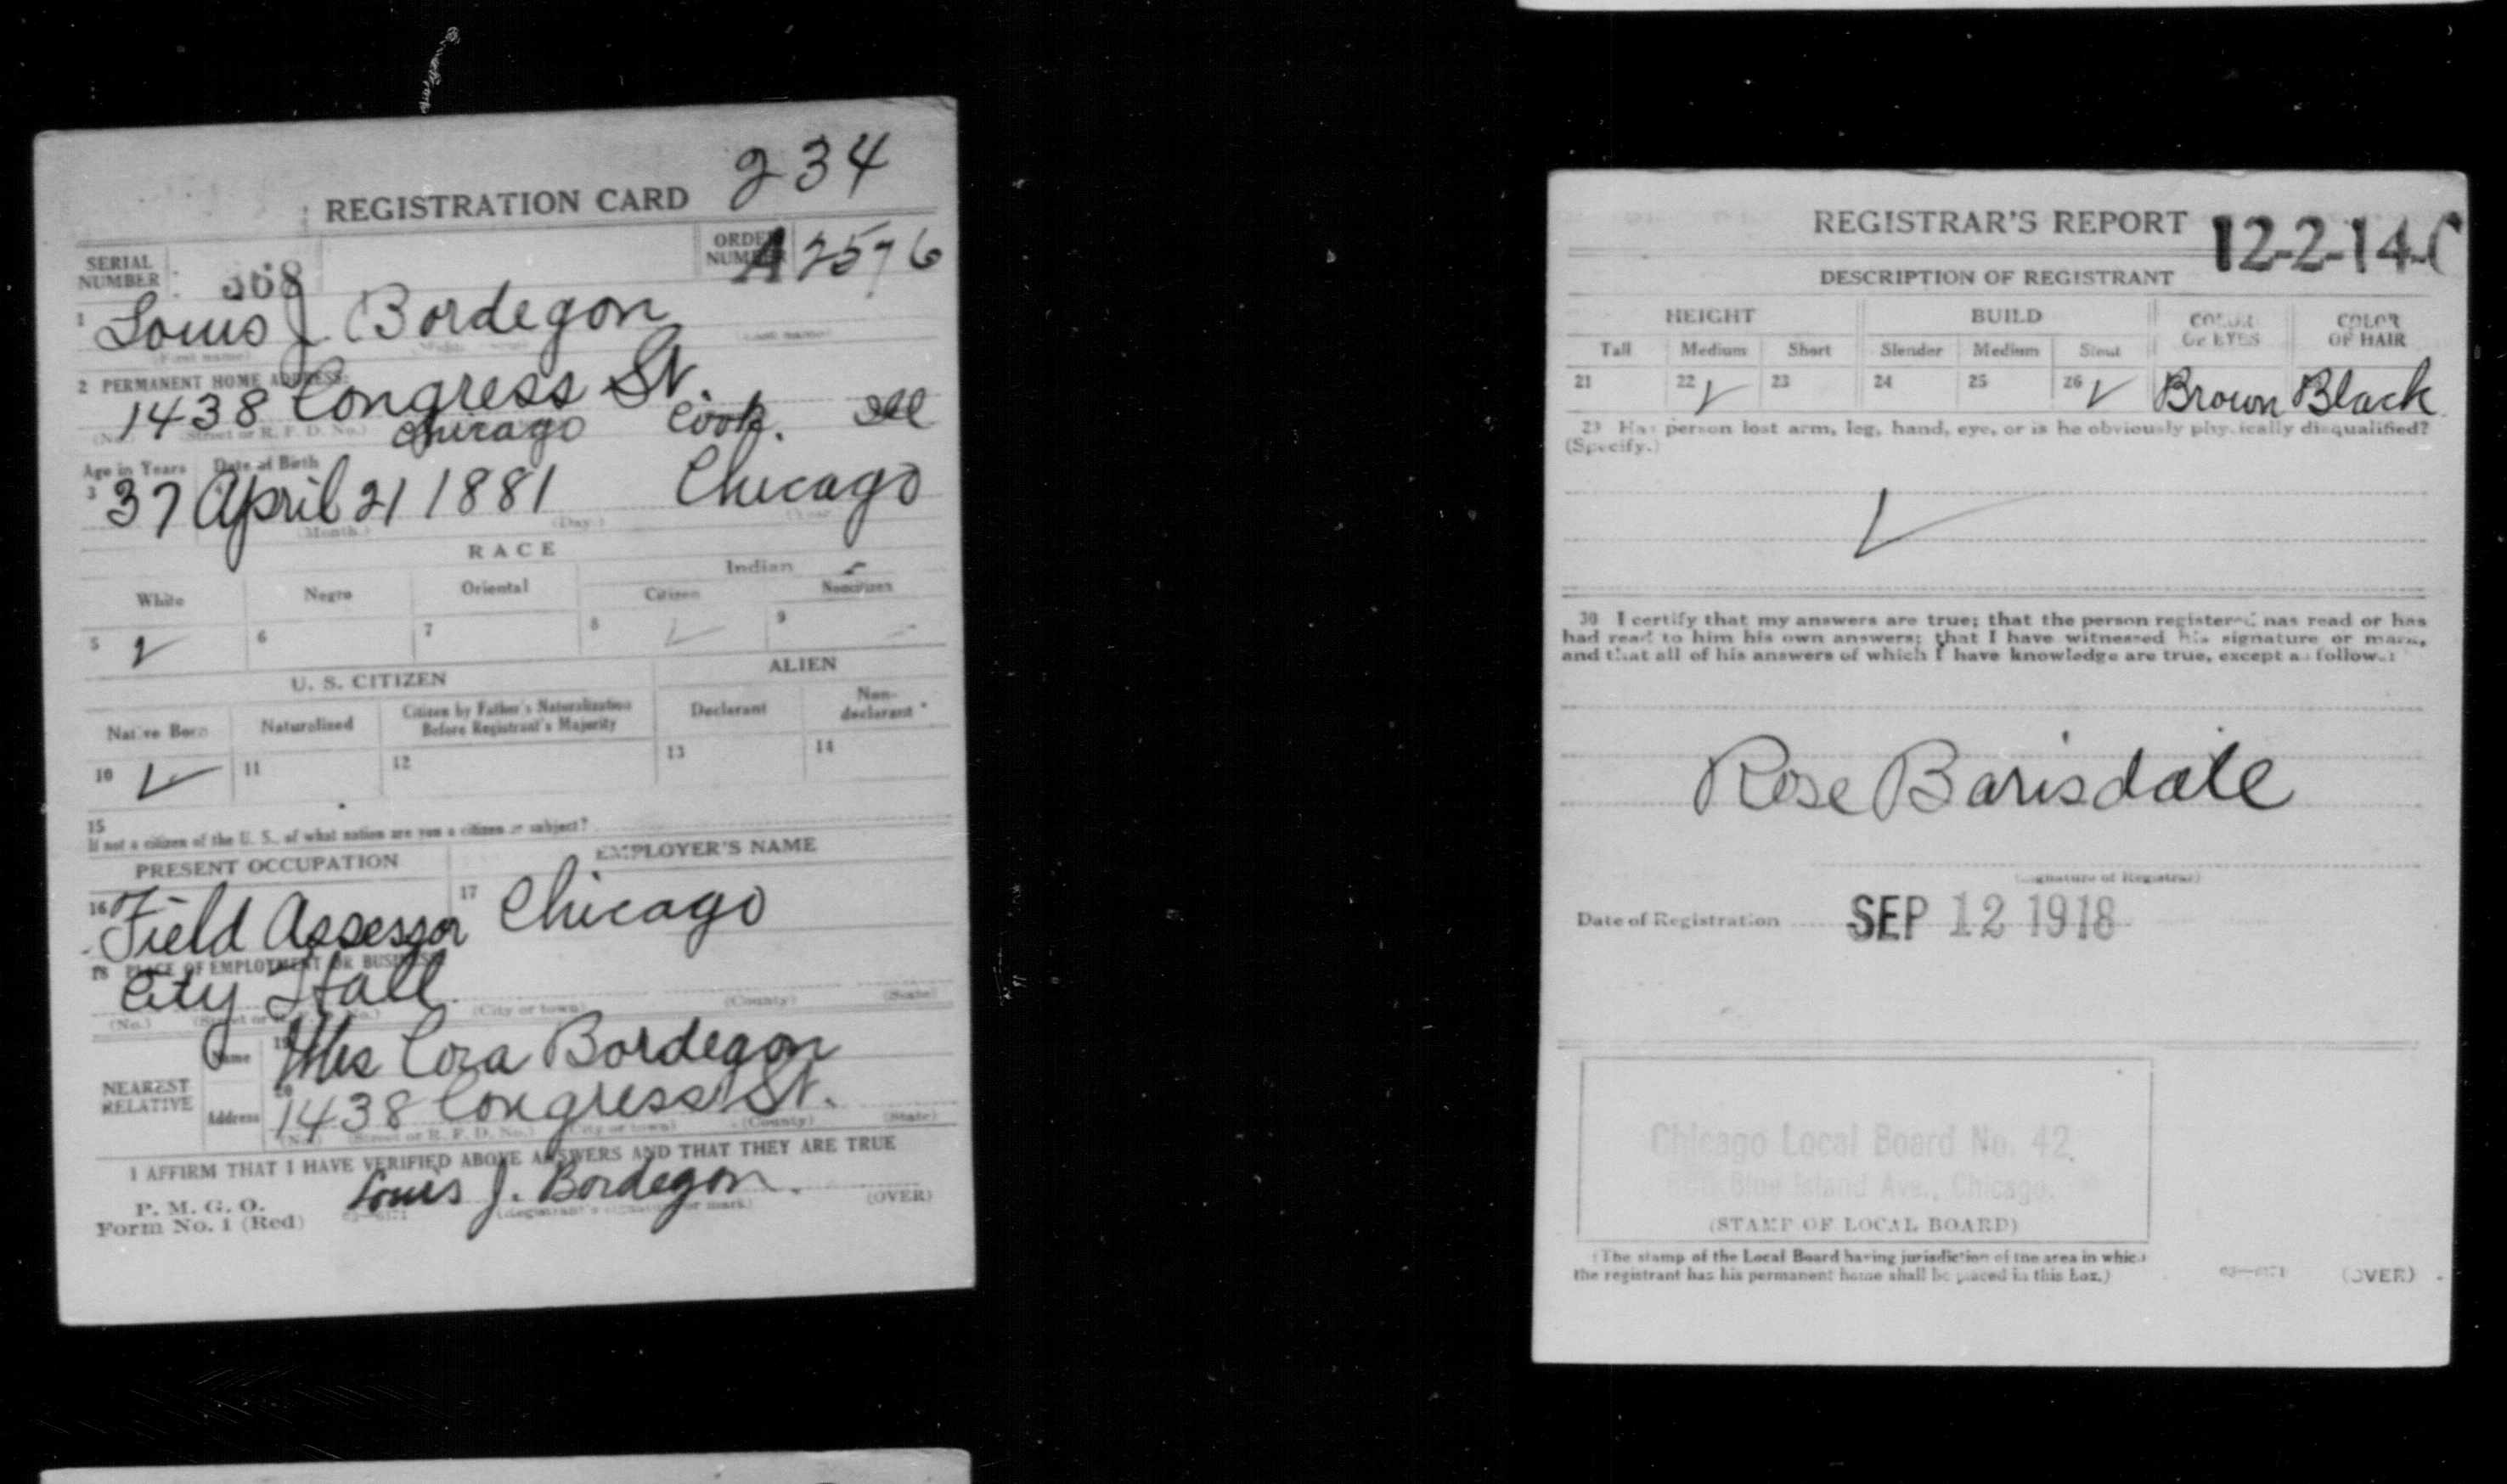 234
REGISTRATION CARD
SERIAL NUMBER 368 ORDER NUMBER A 2576
1 Louis J Bordegon
(First name) (Last name)
2 PERMANENT HOME ADDRESS:
1438 Congress St.
Chicago Cook. Ill
(No.) (Street or R. F. D. No.)
Age in Years Date of Birth
3 37 April 21 1881 Chicago
(Month.) (Day.) (Year.)
RACE
White Negro Oriental Indian
Citizen Noncitizen
5 6 7 8 9
U. S. CITIZEN ALIEN
Native Born Naturalized Citizen by Father's Naturalization Before Registrant's Majority Declarant Non-declarant
10 11 12 13 14
15
If not a citizen of the U. S., of what nation are you a citizen or subject?
PRESENT OCCUPATION EMPLOYER'S NAME
16 Field Assessor 17 Chicago
18 PLACE OF EMPLOYMENT OR BUSINESS
City Hall
(No.) (Street or R. F. D. No.) (City or town) (County) (State)
NEAREST RELATIVE
Name 19 Mrs Cora Bordegon
Address 20 1438 Congress St.
(No.) (Street or R. F. D. No.) (City or town) (County) (State)
I AFFIRM THAT I HAVE VERIFIED ABOVE ANSWERS AND THAT THEY ARE TRUE
P. M. G. O.
Form No. 1 (Red) 03—6171 Louis J. Bordegon. (Registrant's signature or mark) (OVER)
REGISTRAR'S REPORT 12-2-14-C
DESCRIPTION OF REGISTRANT
HEIGHT BUILD COLOR OF EYES COLOR OF HAIR
Tall Medium Short Slender Medium Stout
21 22 23 24 25 26 Brown Black
29 Has person lost arm, leg, hand, eye, or is he obviously physically disqualified?
(Specify.)
30 I certify that my answers are true; that the person registered has read or has
had read to him his own answers; that I have witnessed his signature or mark,
and that all of his answers of which I have knowledge are true, except as follows:
Rose Barisdale
(Signature of Registrar)
Date of Registration SEP 12 1918
Chicago Local Board No. 42.
Blue Island Ave., Chicago.
(STAMP OF LOCAL BOARD)
(The stamp of the Local Board having jurisdiction of the area in which
the registrant has his permanent home shall be placed in this box.)
03—6171 (OVER)